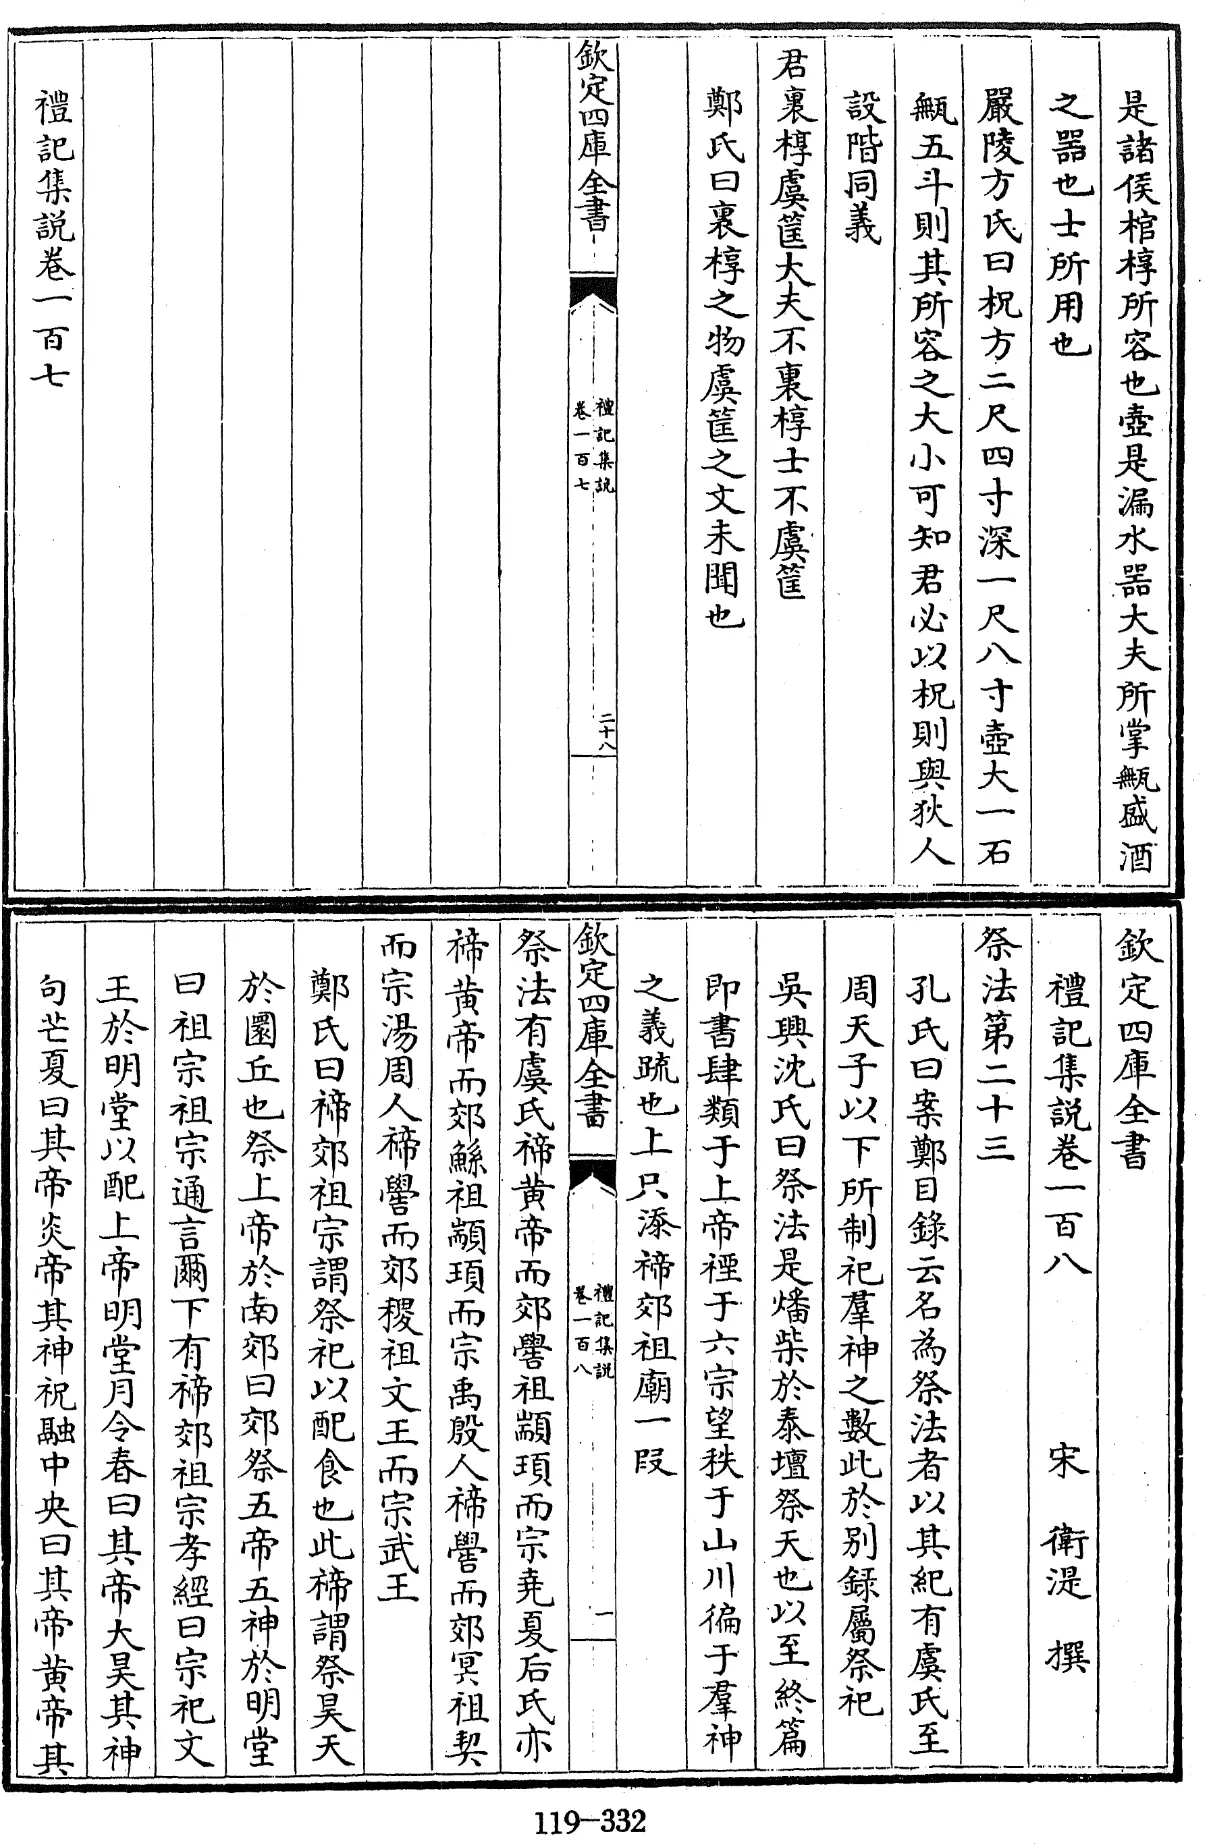 是諸侯棺椁所容也壺是漏水器大夫所掌甒盛酒
之器也士所用也
嚴陵方氏曰柷方二尺四寸深一尺八寸壺大一石
甒五斗則其所容之大小可知君必以柷則與狄人
設階同義
君裏椁虞筐大夫不裏椁士不虞筐
鄭氏曰裏椁之物虞筐之文未聞也
欽定四庫全書
禮記集説
卷一百七
二十八
禮記集説卷一百七
欽定四庫全書
禮記集説卷一百八
宋 衛湜 撰
祭法第二十三
孔氏曰案鄭目錄云名為祭法者以其紀有虞氏至
周天子以下所制祀羣神之數此於别錄屬祭祀
吳興沈氏曰祭法是燔柴於泰壇祭天也以至終篇
即書肆類于上帝禋于六宗望秩于山川徧于羣神
之義疏也上只添禘郊祖廟一段
欽定四庫全書
禮記集説
卷一百八
一
祭法有虞氏禘黄帝而郊嚳祖顓頊而宗堯夏后氏亦
禘黄帝而郊鯀祖顓頊而宗禹殷人禘嚳而郊冥祖契
而宗湯周人禘嚳而郊稷祖文王而宗武王
鄭氏曰禘郊祖宗謂祭祀以配食也此禘謂祭昊天
於圜丘也祭上帝於南郊曰郊祭五帝五神於明堂
曰祖宗祖宗通言爾下有禘郊祖宗孝經曰宗祀文
王於明堂以配上帝明堂月令春曰其帝大昊其神
句芒夏曰其帝炎帝其神祝融中央曰其帝黄帝其
119-332